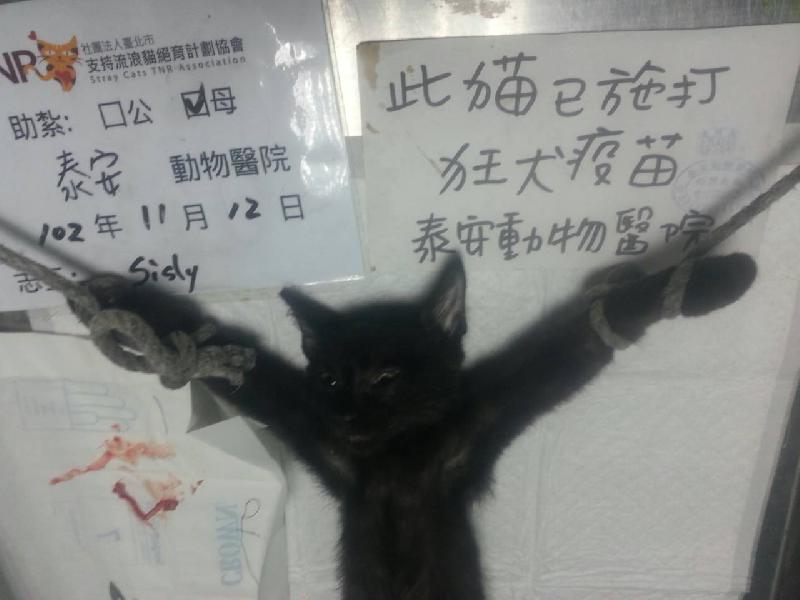 社團法人臺北市
支持流浪貓絕育計劃協會
Stray Cats TNR Association
助紮: □公 ☑母
泰安 動物醫院
102 年 11 月 12 日
Sisly
此猫已施打
狂犬疫苗
泰安動物醫院
CROWN